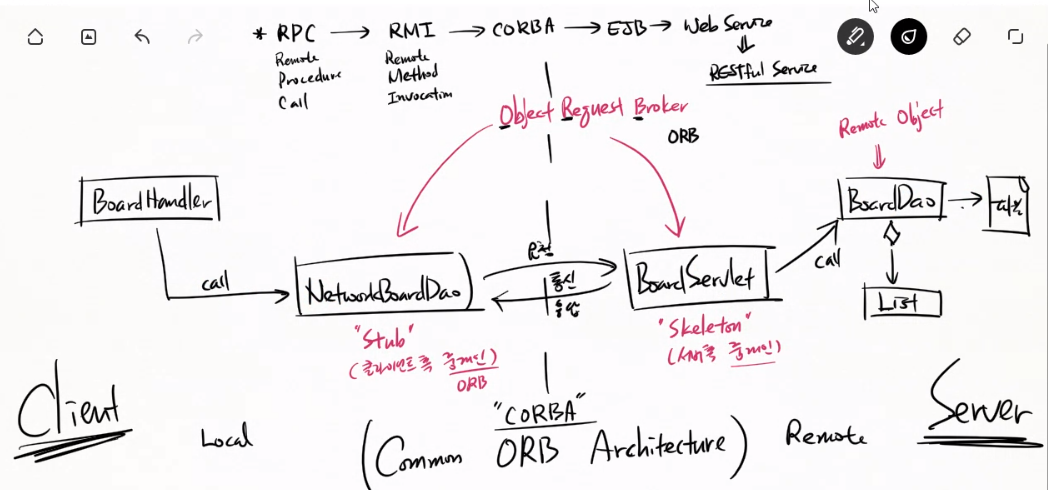 * RPC → RMI → CORBA → EJB → Web Service
Remote
Procedure
Call
Remote
Method
Invocation
⇓
RESTful Service
Object Request Broker
ORB
Remote Object
⇓
BoardHandler
BoardDao → 파일
call
NetworkBoardDao
요청
통신
응답
BoardServlet
call
List
"Stub"
(클라이언트측 중개인)
ORB
"Skeleton"
(서버측 중개인)
Client
Local
"CORBA"
(Common ORB Architecture)
Remote
Server